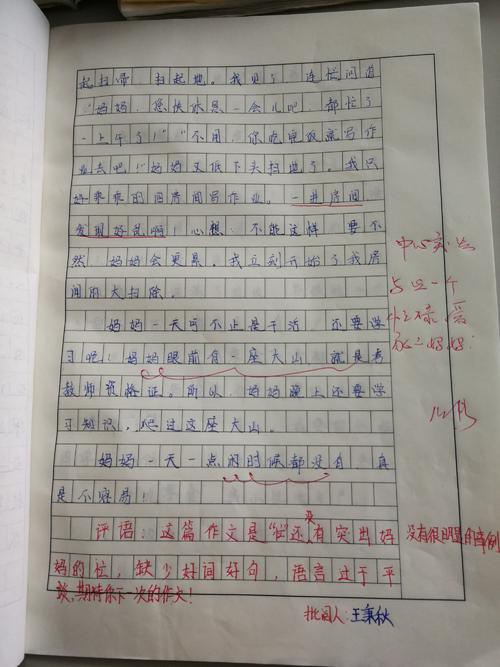 起扫帚,扫起地。我见了,连忙问道
:“妈妈,您快休息一会儿吧,都忙了
一上午了!”“不用,你吃完饭就写作
业去吧!”妈妈又低下头扫地了。我只
好乖乖的回房间写作业。一进房间,
发现好乱啊!心想:不能这样,要不
然,妈妈会更累。我立刻开始了我房
间的大扫除。
妈妈一天可不止是干活,还要学
习呢!妈妈眼前有一座大山,就是考
教师资格证。所以,妈妈晚上还要学
习知识,爬过这座大山。
妈妈一天一点闲时候都没有,真
是不容易!
中心突出
一个
忙碌、爱
妈妈:
评语:这篇作文是“忙”还没有突出妈
没有很明显的事例
妈的忙,缺少好词好句,语言过于平
淡,期待你下一次的作文!
批阅人:王秉秋